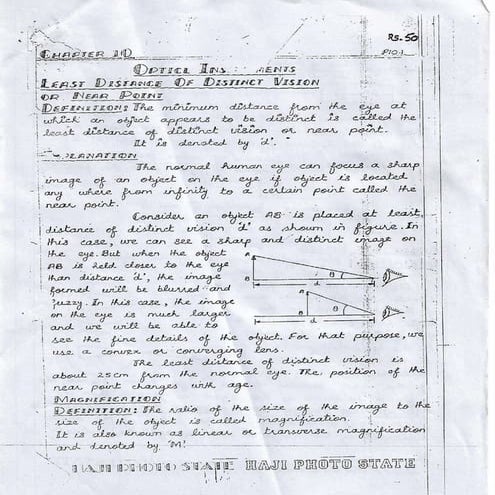 RS.50
P10.1
CHAPTER 10
OPTICL INS MENTS
LEAST DISTANCE OF DISTINCT VISION
OR NEAR POINT
DEFINITION: The minimum distance from the eye at
which an object appears to be distinct is called the
least distance of distinct vision or near point.
It is denoted by 'd'.
LANATION
The normal human eye can focus a sharp
image of an object on the eye if object is located
any where from infinity to a certain point called the
near point.
Consider an object AB is placed at least
distance of distinct vision 'd' as shown in figure. In
this case, we can see a sharp and distinct image on
the eye. But when the object
AB is held closer to the eye
than distance 'd', the image
formed will be blurred and
fuzzy. In this case, the image
on the eye is much larger
and we will be able to
see the fine details of the object. For that purpose, we
use a convex or converging lens.
The least distance of distinct vision is
about 25cm from the normal eye. The position of the
near point changes with age.
MAGNIFICATION
DEFINITION: The ratio of the size of the image to the
size of the object is called magnification.
It is also known as linear or transverse magnification
and denoted by 'M'.
A
B
θ
d
A
B
θ
d
HAJI PHOTO STATE HAJI PHOTO STATE